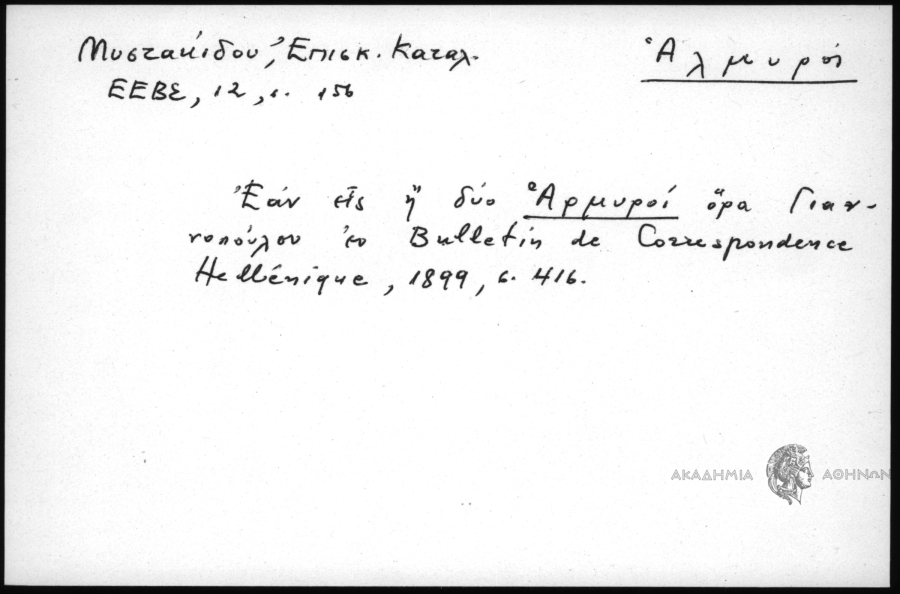 Μυστακίδου, Ἐπισκ. Καταλ.
Ἁλμυροί
ΕΕΒΣ, 12, σ. 156
Ἐάν εἷς ἤ δύο Ἁρμυροί ὅρα Γιαν-
νοπούλου ἐν Bulletin de Correspondence
Hellénique, 1899, σ. 416.
ΑΚΑΔΗΜΙΑ ΑΘΗΝΩΝ